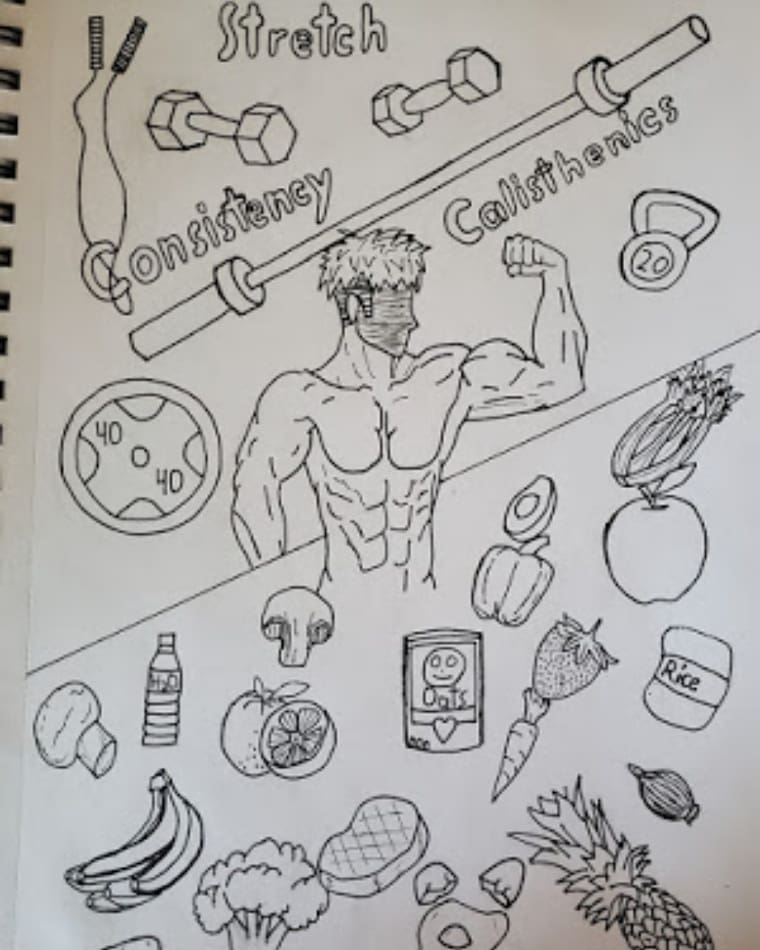 Stretch
Consistency
Calisthenics
20
40
40
H2O
Oats
Rice